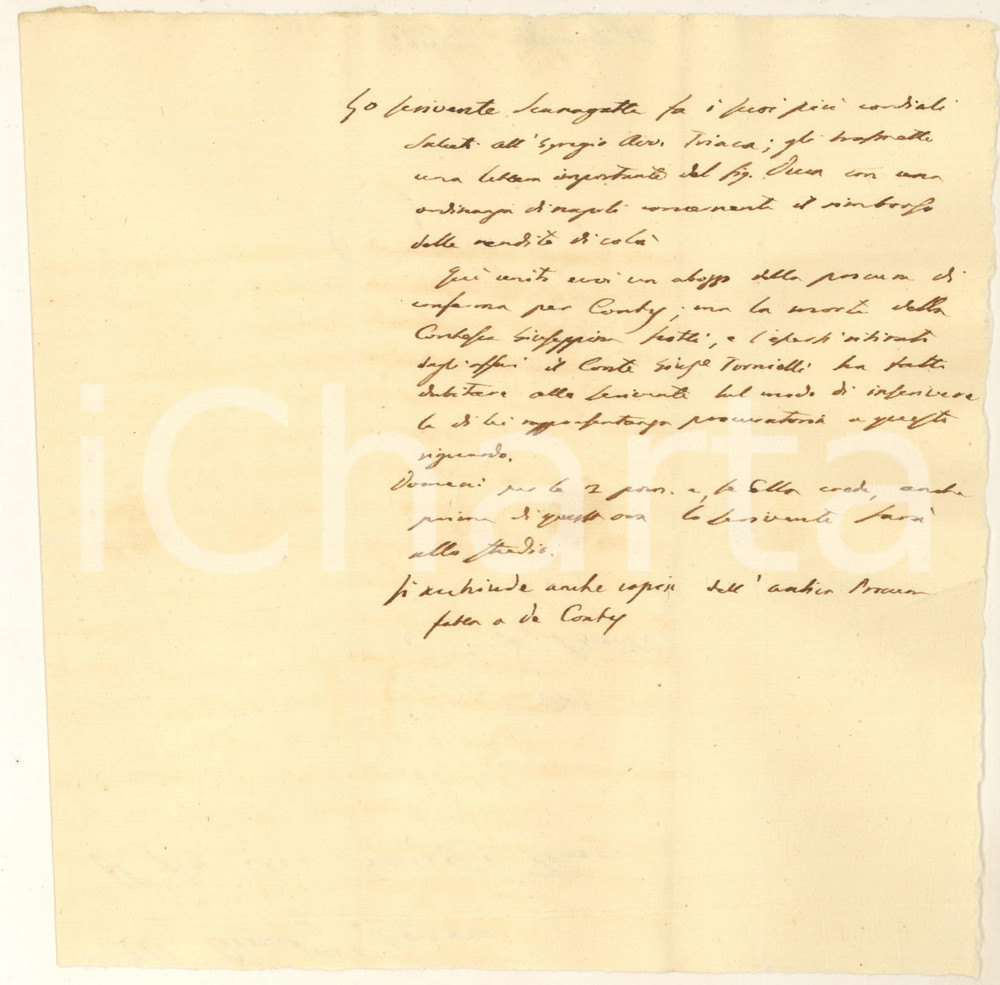 Lo scrivente Scaragatta fa i suoi più cordiali
saluti all'Egregio Avv. Triaca; gli trasmette
una lettera importante del Sig. Duca con una
ordinanza di napoli concernente il rimborso
delle rendite di colà
Qui unito evvi un abozzo della procura di
conferma per Conty; ma la morte della
Contessa Giuseppina Scotti, e l'essersi ritirato
dagli affari il Conte Giusᵉ Tornielli ha fatto
dubitare allo scrivente sul modo di inserivere
la di lei rappresentanza procuratoria a questo
riguardo.
Domani per le 2 pom. e, se Ella crede, anche
prima di quest'ora lo scrivente sarà
allo studio.
Si acchiude anche copia dell'antica Procura
fatta a de Conty
iCharta